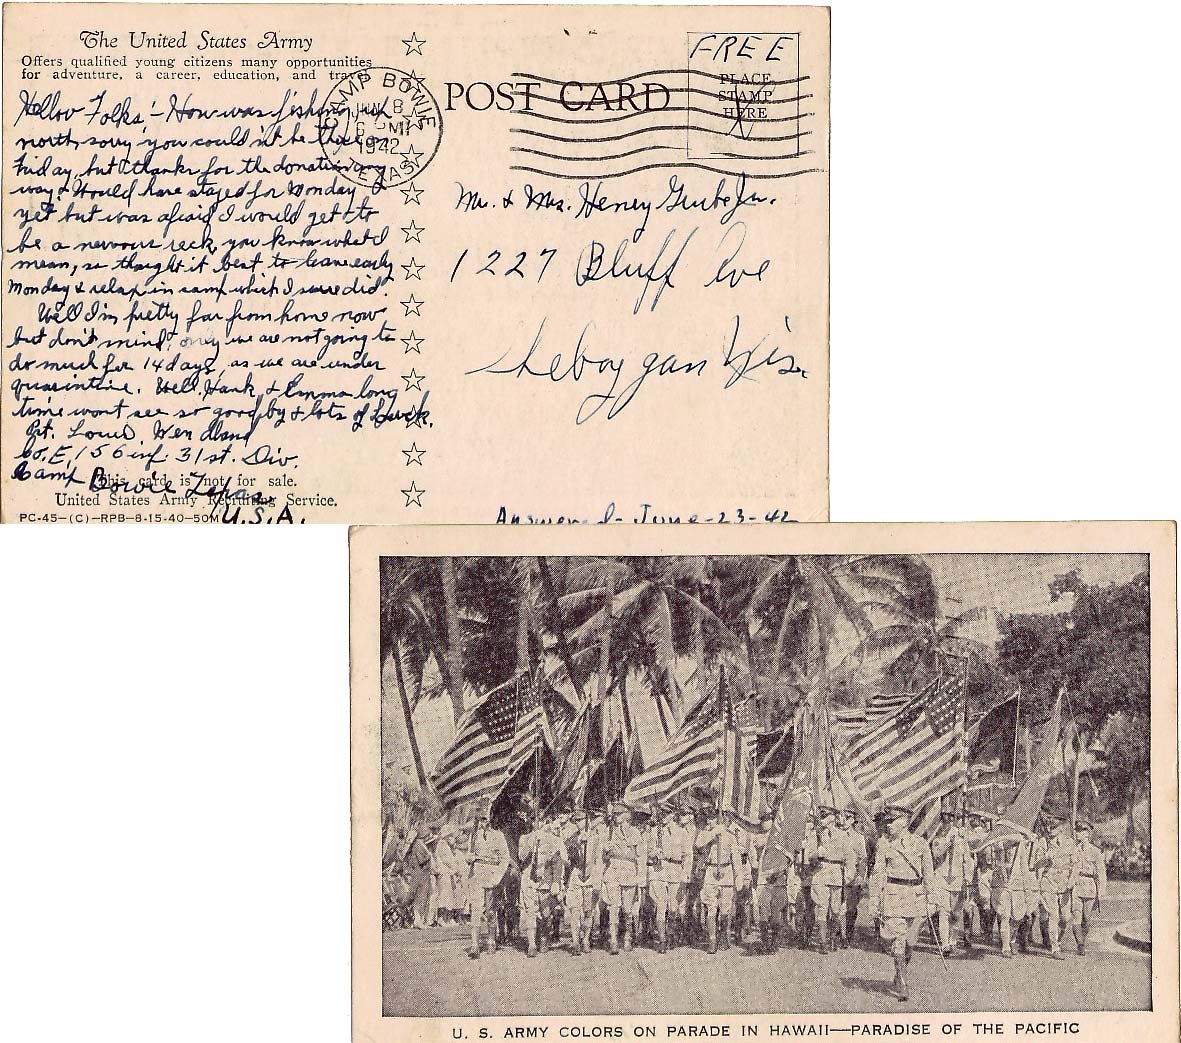 The United States Army
Offers qualified young citizens many opportunities
for adventure, a career, education, and travel
Hellow Folks! - How was fishing up
north, sorry you could n't be there
Friday, but thanks for the donation any
way. Would have stayed for Monday
yet but was afraid I would get to
be a nervous reck, you know what I
mean, so thought it best to leave early
Monday & relax in camp which I sure did.
Well I'm pretty far from home now
but don't mind, only we are not going to
do much for 14 days, as we are under
quarintine. Well, Hank & Emma long
time wont see so good by & lots of Luck.
Pvt. Louis Wendland
Co. E, 156 inf. 31st. Div.
Camp Bowie Texas
U.S.A.
This card is not for sale.
United States Army Recruiting Service.
PC-45-(C)-RPB-8-15-40-50M
CAMP BOWIE
JUN 8
1942
TEXAS
POST CARD
FREE
PLACE
STAMP
HERE
Mr. & Mrs. Henry Grube Jr.
1227 Bluff Ave
Sheboygan Wis.
Answered - June-23-42
U. S. ARMY COLORS ON PARADE IN HAWAII—PARADISE OF THE PACIFIC